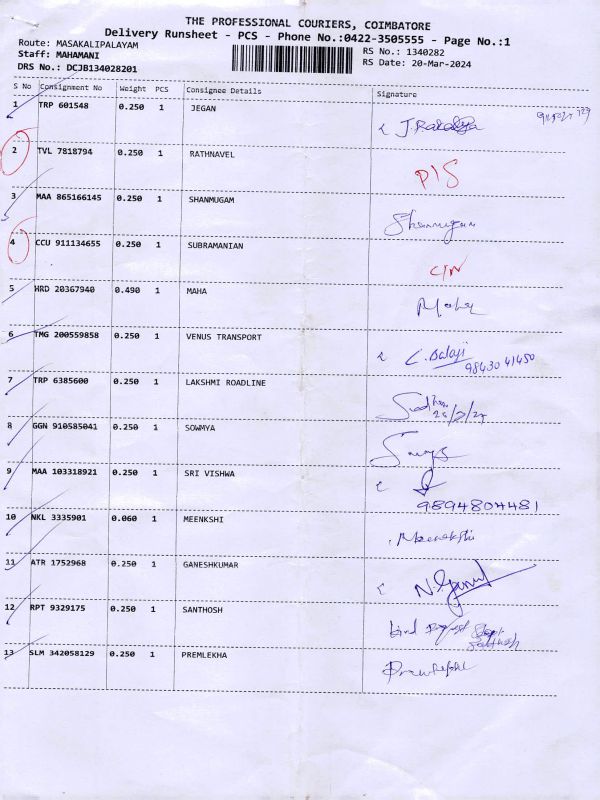 THE PROFESSIONAL COURIERS, COIMBATORE
Delivery Runsheet - PCS - Phone No.:0422-3505555 - Page No.:1
Route: MASAKALIPALAYAM
RS No.: 1340282
Staff: MAHAMANI
RS Date: 20-Mar-2024
DRS No.: DCJB134028201
S No Consignment No Weight PCS Consignee Details Signature
1 TRP 601548 0.250 1 JEGAN
2 TVL 7818794 0.250 1 RATHNAVEL
P/S
3 MAA 865166145 0.250 1 SHANMUGAM
Shanmugam
4 CCU 911134655 0.250 1 SUBRAMANIAN
C/N
5 HRD 20367940 0.490 1 MAHA
Maha
6 TMG 200559858 0.250 1 VENUS TRANSPORT
C. Balaji
98430 41450
7 TRP 6385600 0.250 1 LAKSHMI ROADLINE
8 GGN 910585041 0.250 1 SOWMYA
9 MAA 103318921 0.250 1 SRI VISHWA
9894804481
10 NKL 3335901 0.060 1 MEENKSHI
Meenakshi
11 ATR 1752968 0.250 1 GANESHKUMAR
12 RPT 9329175 0.250 1 SANTHOSH
Santhosh
13 SLM 342058129 0.250 1 PREMLEKHA